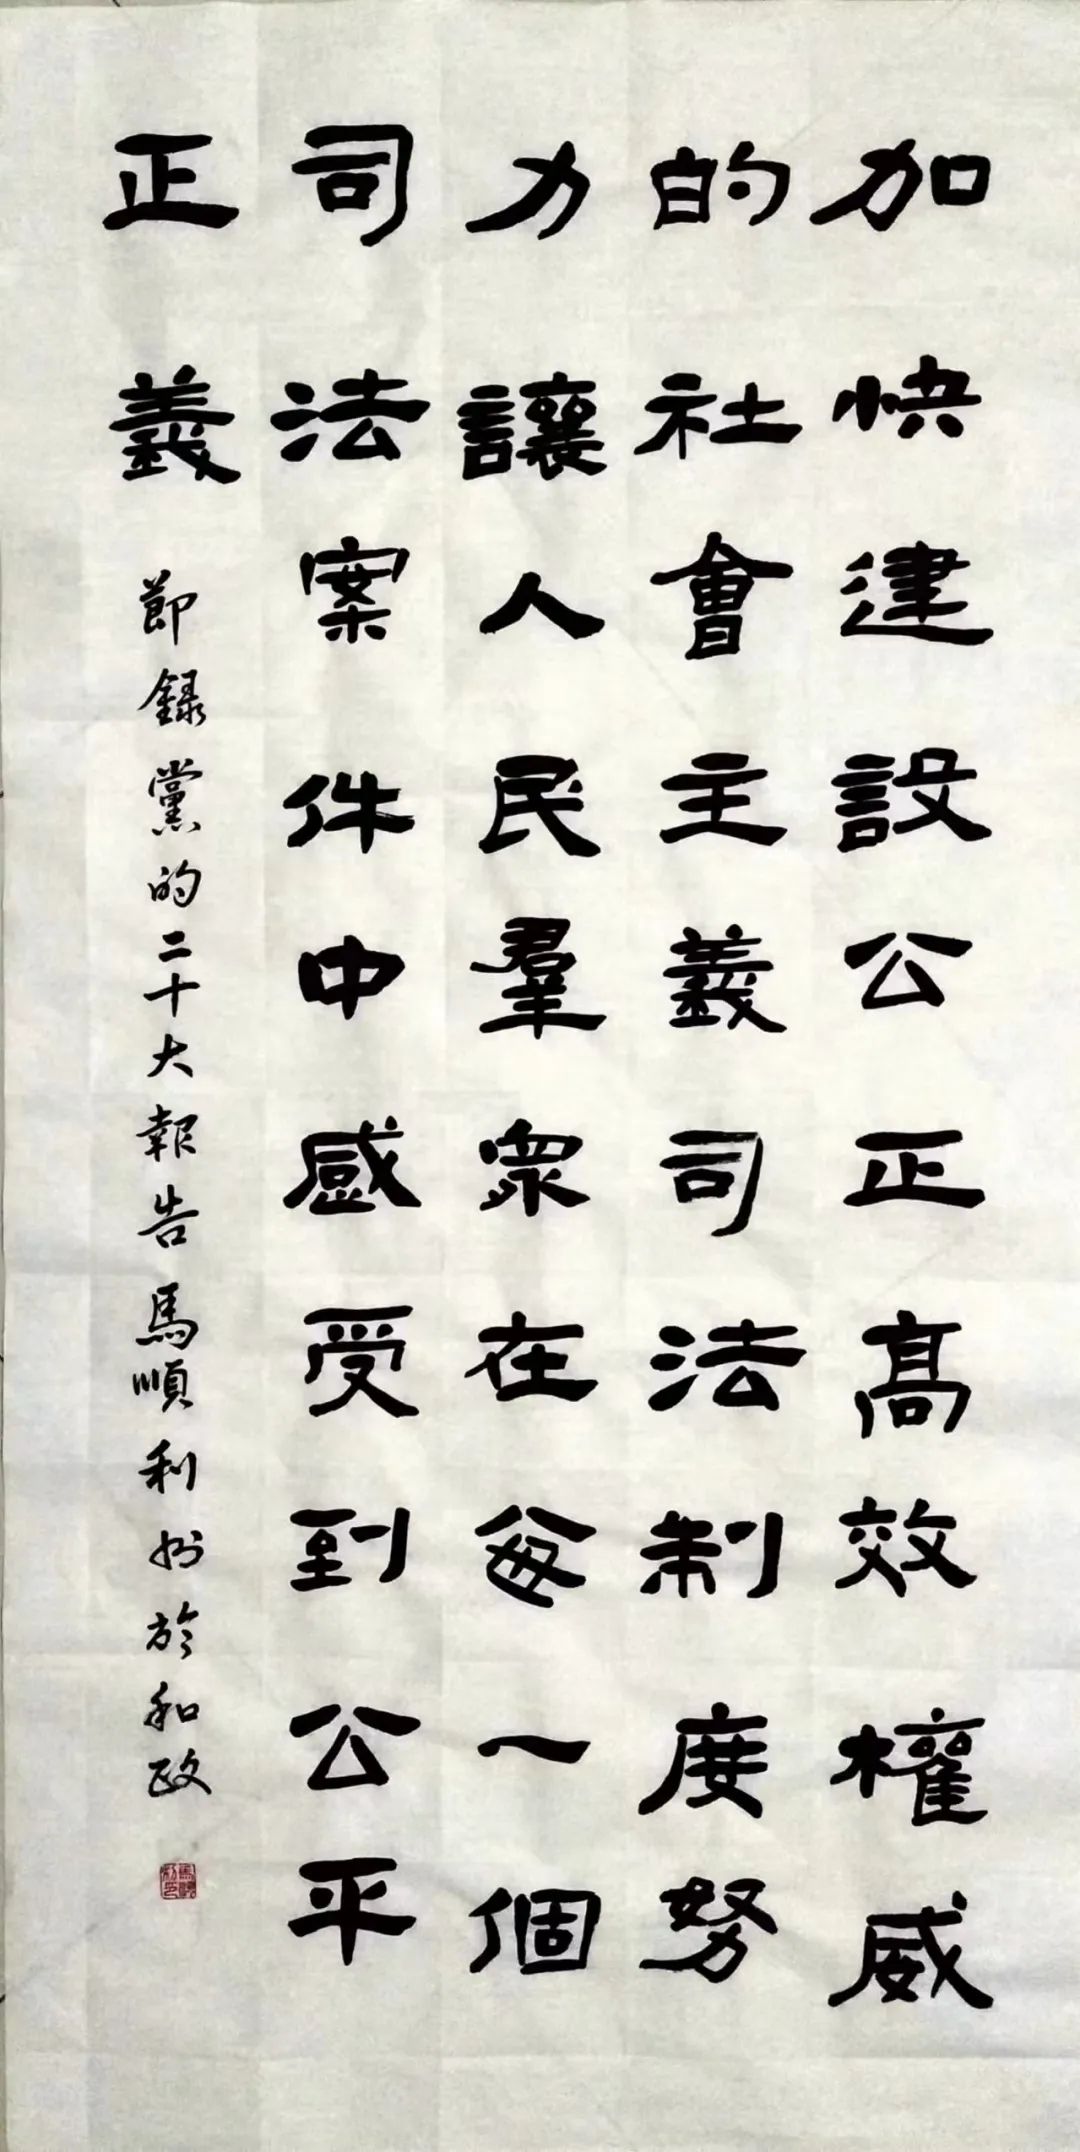 加快建設公正高效權威
的社會主義司法制度努
力讓人民羣眾在每一個
司法案件中感受到公平
正義
節録黨的二十大報告馬順利書於和政